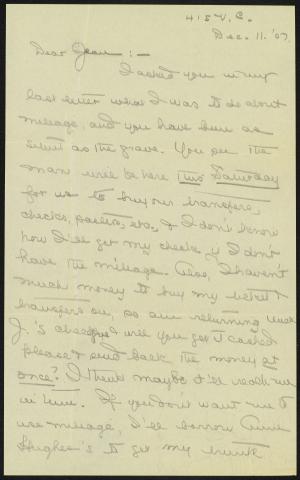 415 V. C.
Dec. 11. '07.
Dear Jean:-
I asked you in my
last letter what I was to do about
mileage, and you have been as
silent as the grave. You see the
man will be here This Saturday
for us to buy our transfers,
checks, parlors, etc., & I don't know
how I'll get my checks if I don't
have the mileage. Also, I haven't
much money to buy my ticket &
transfers on, so am returning
J.'s check, will you get it cashed
please & send back the money at
once? I think maybe it'll reach me
in time. If you don't want me to
use mileage, I'll borrow Anne
Hughes's to get my trunk